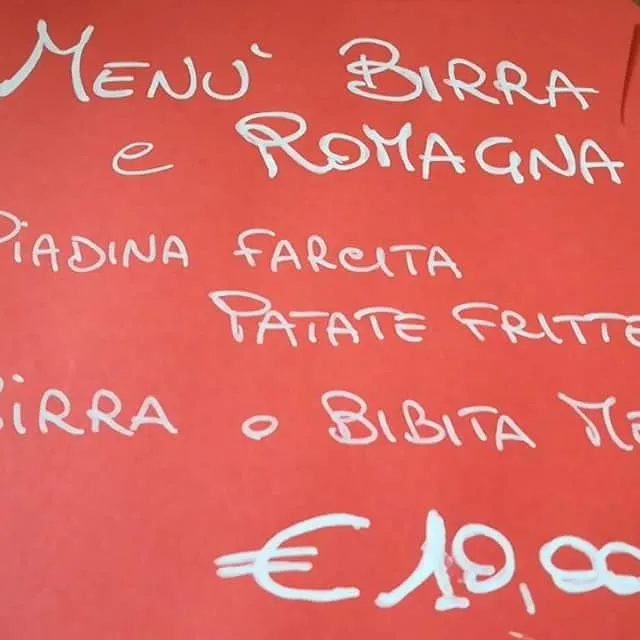 MENU' BIRRA
e ROMAGNA
PIADINA FARCITA
PATATE FRITTE
BIRRA o BIBITA ME
€ 10,00